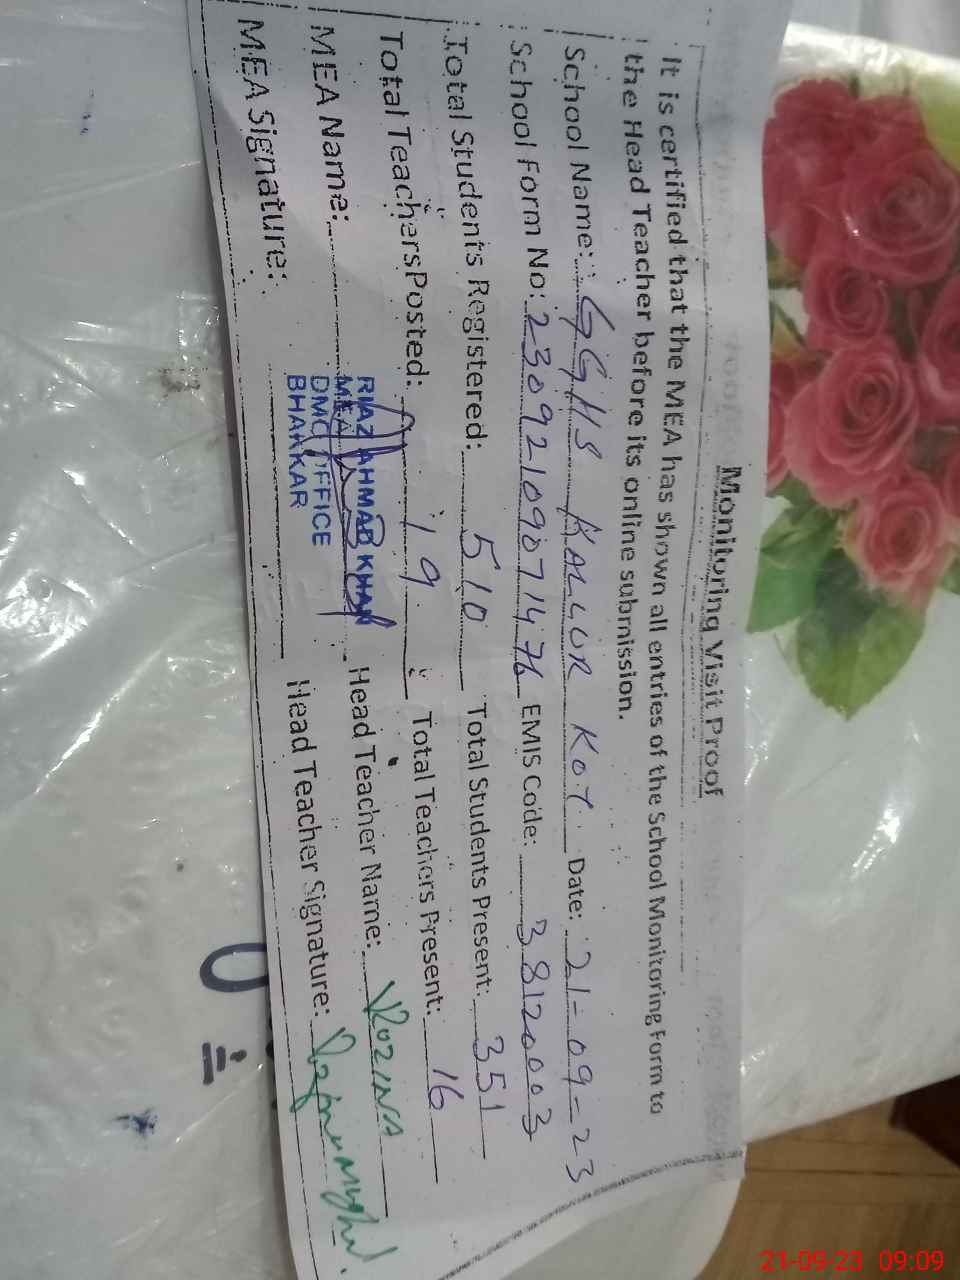 Monitoring Visit Proof
It is certified that the MEA has shown all entries of the School Monitoring Form to
the Head Teacher before its online submission.
School Name: GGHS KALLUR KOT Date: 21-09-23
School Form No: 23092109071476 EMIS Code: 38120003
Total Students Registered: 510 Total Students Present: 351
Total Teachers Posted: 19 Total Teachers Present: 16
MEA Name: RIAZ AHMAD KHAN Head Teacher Name: Rozina
MEA
MEA Signature: DMO OFFICE Head Teacher Signature:
BHAKKAR
21-09-23 09:09